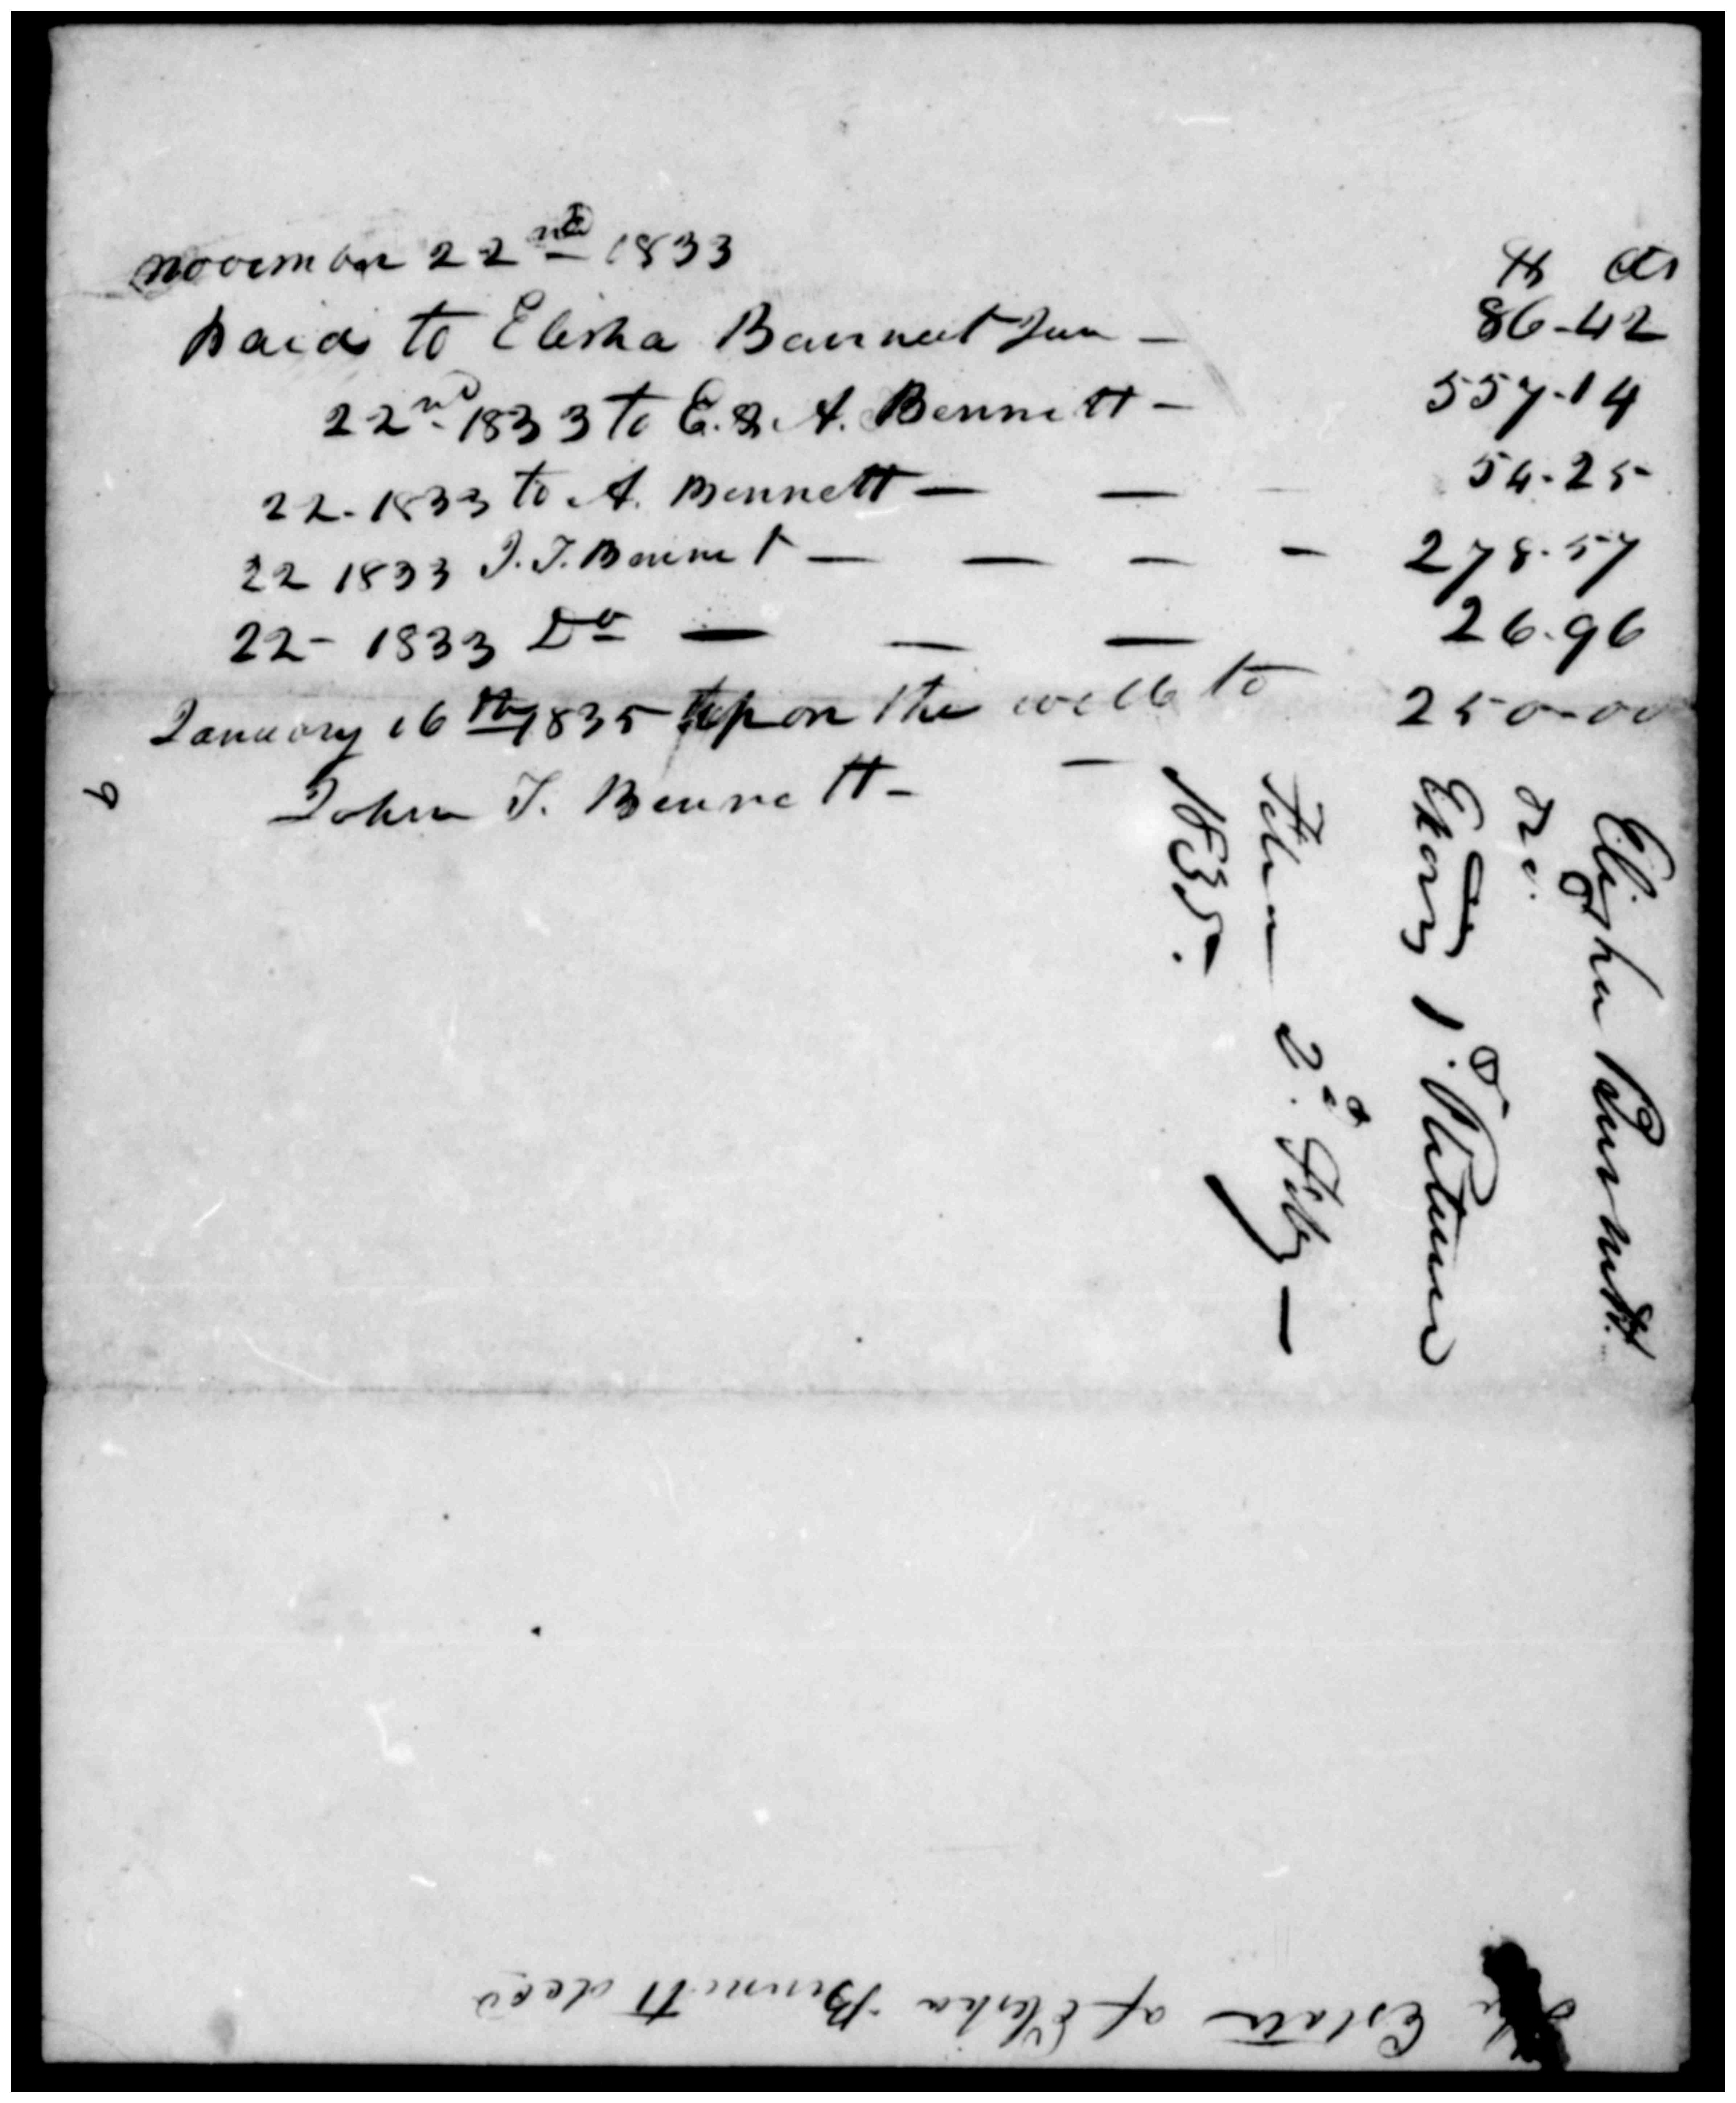 november 22nd 1833 $ cts
Paid to Elisha Bennett Jun - 86-42
22nd 1833 to E. & A. Bennett - 557-14
22-1833 to A. Bennett - - 54-25
22 1833 J. T. Bennet - - - - 278-57
22- 1833 Do - - - 26-96
January 16th 1835 upon the will to 250-00
John T. Bennett -
Elisha Bennett
Exors 1st Return
2d Feby -
1835.
The Estate of Elisha Bennett decd